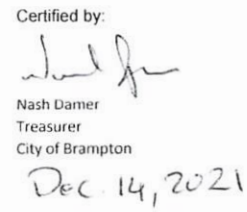 Certified by:
Nash Damer
Treasurer
City of Brampton
Dec. 14, 2021